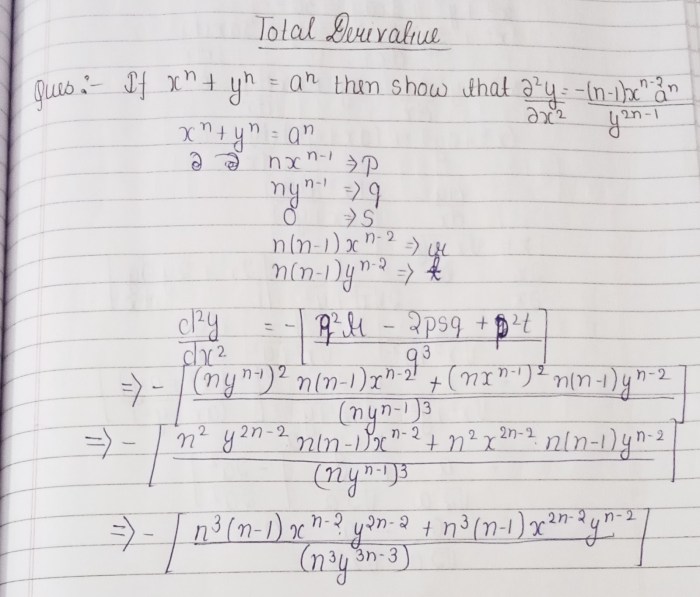 Total Derivative
Ques:- If xⁿ + yⁿ = aⁿ then show that ∂²y/∂x² = -(n-1)xⁿ⁻²aⁿ/y²ⁿ⁻¹
xⁿ + yⁿ = aⁿ
nxⁿ⁻¹ ⇒ p
nyⁿ⁻¹ ⇒ q
0 ⇒ s
n(n-1)xⁿ⁻² ⇒ r
n(n-1)yⁿ⁻² ⇒ t
d²y/dx² = -[q²r - 2psq + p²t / q³]
⇒ -[(nyⁿ⁻¹)² n(n-1)xⁿ⁻² + (nxⁿ⁻¹)² n(n-1)yⁿ⁻² / (nyⁿ⁻¹)³]
⇒ -[n² y²ⁿ⁻² n(n-1)xⁿ⁻² + n² x²ⁿ⁻² n(n-1)yⁿ⁻² / (nyⁿ⁻¹)³]
⇒ -[n³(n-1)xⁿ⁻² y²ⁿ⁻² + n³(n-1)x²ⁿ⁻² yⁿ⁻² / (n³y³ⁿ⁻³)]